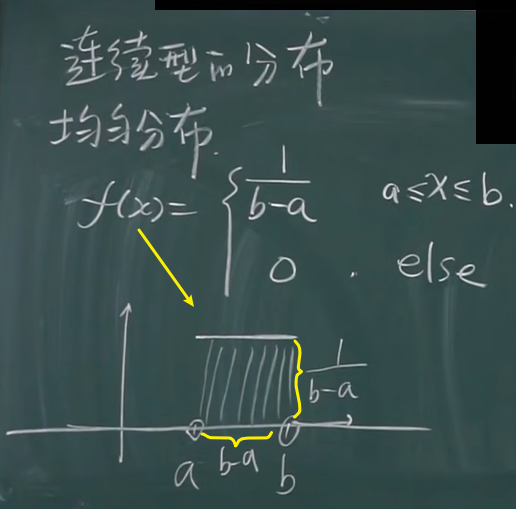 连续型的分布
均匀分布.
f(x)= { 1/(b-a) a≤x≤b.
0 . else
1/(b-a)
b-a
a b